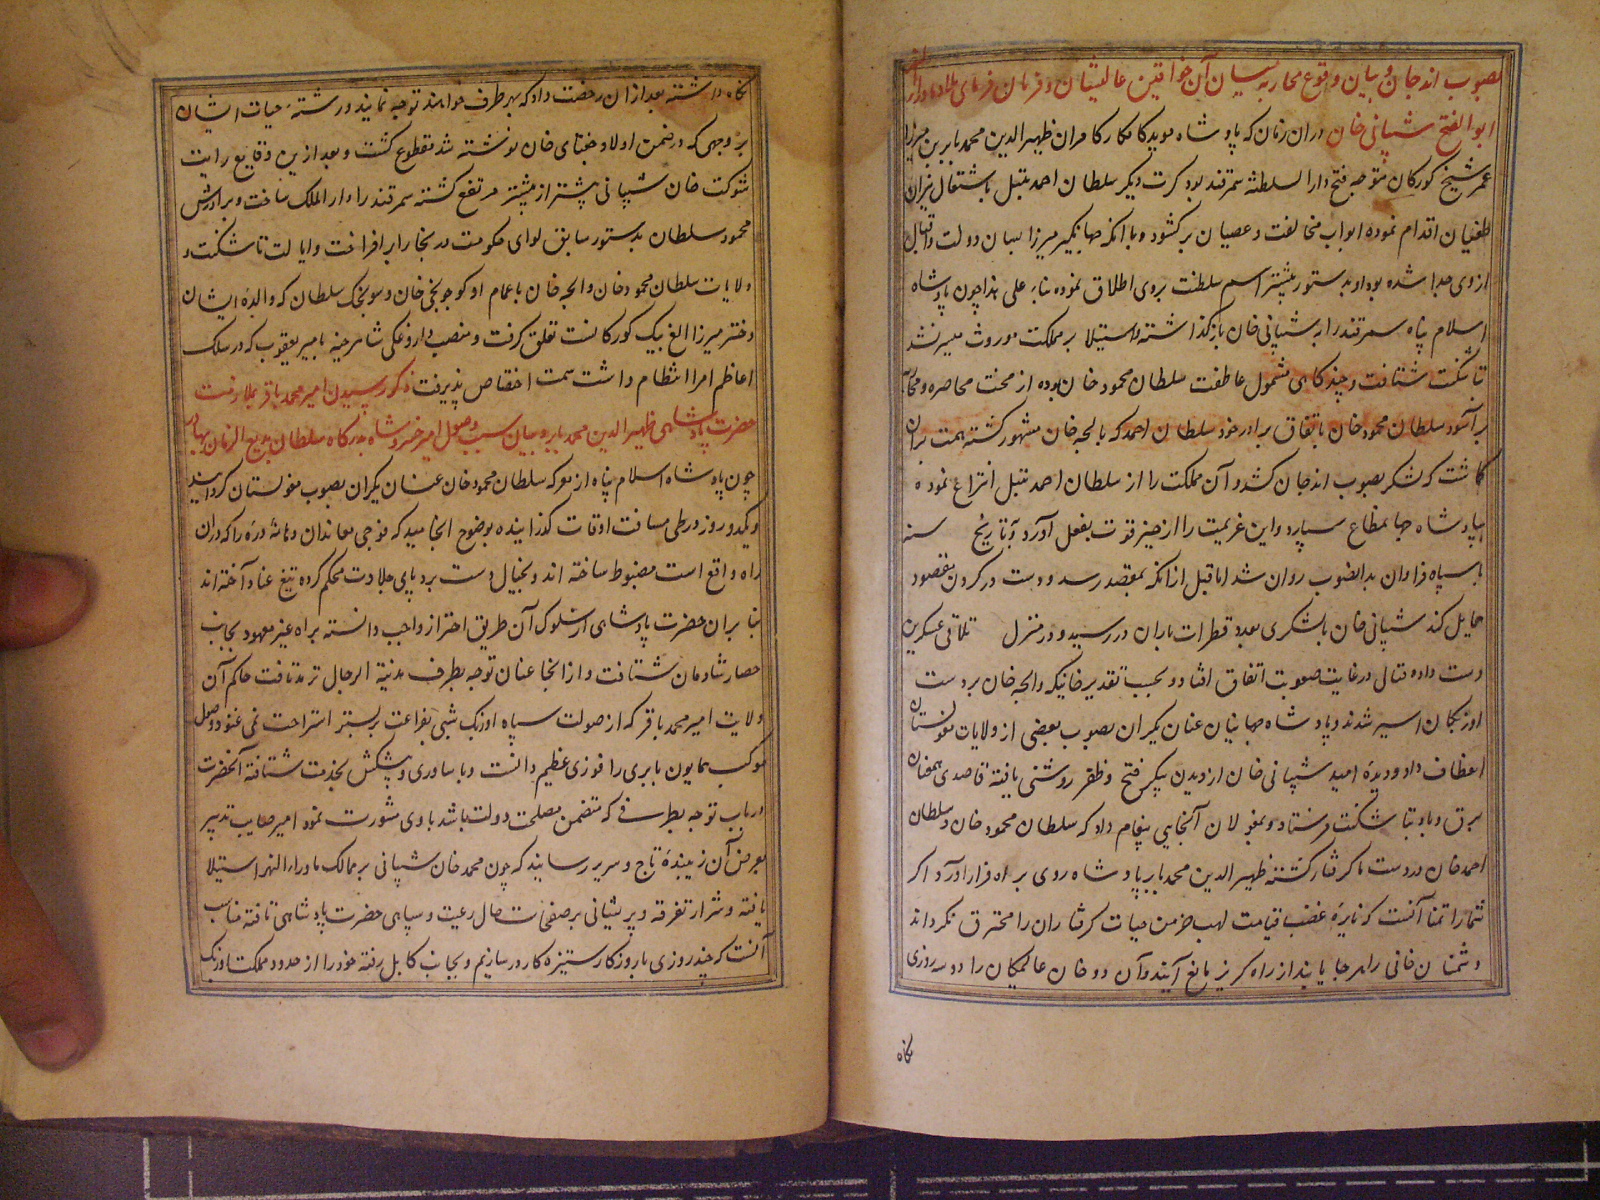 بصوب اندجان و بیان وقوع محاربه میان آن خواقین عالیشان و فرمان فرمای بلاد
ابوالفتح شیبانی خان دران زمان که پادشاه موید کامکار کامران ظهیرالدین محمد بابر بن میرزا
عمر شیخ کورکان متوجه فتح دارالسلطنه سمرقند بود کرت دیکر سلطان احمد تنبل باشتعال نیران
طغیان اقدام نموده ابواب مخالفت و عصیان برکشود و با انکه جهانکیر میرزا بسان دولت و اقبال
ازوی جدا شده بود او بدستور پیشتر اسم سلطنت بروی اطلاق نموده بناء علی هذا چون پادشاه
اسلام پناه سمرقند را به شیبانی خان بازکذاشته و استیلا بر مملکت موروث میسر نشد
تاشکنت شتافت و چندکاهی مشمول عاطفت سلطان محمود خان بوده از محنت محاصره و محاربه
برآسود سلطان محمود خان باتفاق برادر خود سلطان احمد که بالجه خان مشهور کشته همت بران
کماشت که لشکر بصوب اندجان کشد و آن مملکت را از سلطان احمد تنبل انتزاع نموده
بپادشاه جهانمطاع سپارد و این عزیمت را از حیز قوت بفعل آورد و بتاریخ سنه
با سپاه فراوان بدانصوب روان شد اما قبل ازانکه بمقصد رسد و دست در کردن مقصود
حمایل کند شیبانی خان با لشکری بعدد قطرات باران در رسید و در منزل تلاقی عسکرین
دست داده قتال در غایت صعوبت اتفاق افتاد و بحسب تقدیر خانیکه والجه خان بردست
اوزبکان اسیر شدند و پادشاه جهانیان عنان یکران بصوب بعضی از ولایات مغولستان
انعطاف داد و دیدهٔ امید شیبانی خان از دیدن پیکر فتح و ظفر روشنی یافته قاصدی همعنان
برق و باد بتاشکنت فرستاد و بمغولان آنجایی پیغام داد که سلطان محمود خان و سلطان
احمد خان در دست ما کرفتار کشتند ظهیرالدین محمد بابر پادشاه روی براه فرار آورد اکر
شما را تمنا آنست که نایرهٔ غضب قیامت لهب خرمن حیات کرفتاران را محترق نکرداند
دشمنان خانی را هرجا یابند از راه کریز مانع آیند و آن دو خان عالیمکان را دو سه روزی
نکاه
نکاه داشته بعد ازان رخصت داد که بهر طرف خواهند توجه نمایند و رشتهٔ حیات ایشان
بروجهی که در ضمن اولاد جغتای خان نوشته شد مقطوع کشت و بعد ازین وقایع رایت
شوکت خان شیبانی پیشتر از پیشتر مرتفع کشته سمرقند را دارالملک ساخت و برادرش
محمود سلطان بدستور سابق لوای حکومت در بخارا برافراخت و ایالت تاشکنت و
ولایات سلطان محمود خان والجه خان باعمام او کوجونجی خان و سونجک سلطان که والدهٔ ایشان
دختر میرزا الغ بیک کورکانست تعلق کرفت و منصب داروغکی شاهرخیه بامیر یعقوب که در سلک
اعاظم امرا انتظام داشت سمت اختصاص پذیرفت ذکر رسیدن امیر محمد باقر بملازمت
حضرت پادشاهی ظهیرالدین محمد بابر و بیان سبب وصول امیر خسروشاه بدرکاه سلطان بدیع الزمان بهادر
چون پادشاه اسلام پناه از معرکه سلطان محمود خان عنان یکران بصوب مغولستان کردانید
و یکدو روز در طی مسافت اوقات کذرانیده بوضوح انجامید که فوجی معاندان دهانهٔ درهٔ را که دران
راه واقع است مضبوط ساخته اند و بخیال دست برد پای جلادت محکم کرده تیغ عناد آخته اند
بنابران حضرت پادشاهی از سلوک آن طریق احتراز واجب دانسته براه غیر معهود بجانب
حصار شادمان شتافت و از انجا عنان توجه بطرف مدینة الرجال ترمد تافت حاکم آن
ولایت امیر محمد باقر که از صولت سپاه اوزبک شبی بفراغت بر بستر استراحت نمی غنود وصول
موکب همایون بابری را فوزی عظیم دانست و با ساوری و پیشکش بخدمت شتافته آنحضرت
در باب توجه بطرفی که متضمن مصلحت دولت باشد با وی مشورت نمود امیر صایب تدبیر
بعرض آن زیبندهٔ تاج و سریر رسانید که چون محمد خان شیبانی بر ممالک ماوراءالنهر استیلا
یافته و شرار تفرقه و پریشانی بر صفحات حال رعیت و سپاهی حضرت پادشاهی تافته مناسب
آنست که چند روزی با روزکار ستیزه کار درسازیم و بجانب کابل رفته خود را از حدود مملکت اوزبک